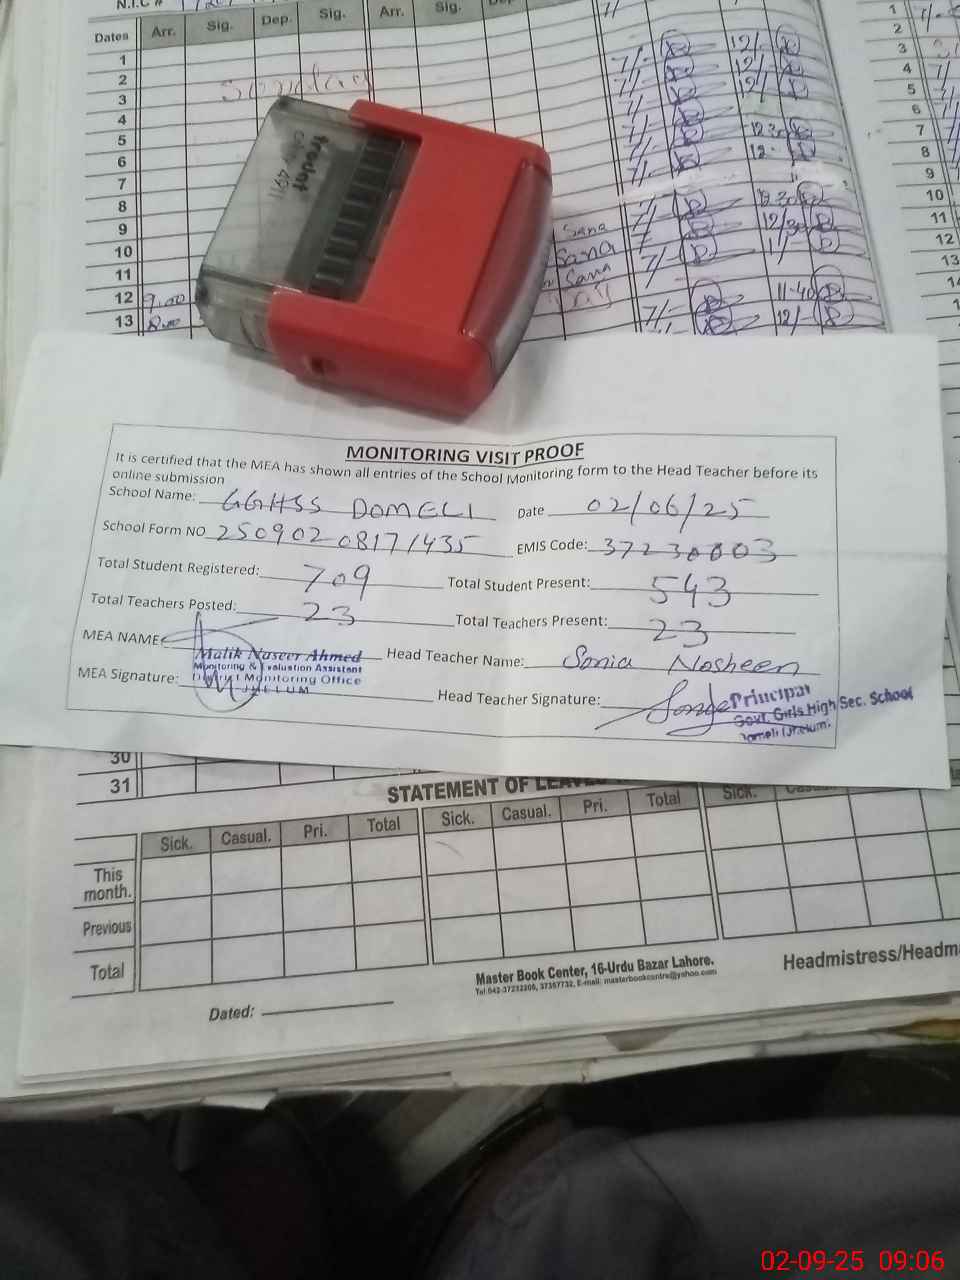 N.I.C #
Dates Arr. Sig. Dep. Sig. Arr. Sig.
1
2
3
4
5
6
7
8
9
10
11
12 9.00
13 8.00
Sunday
trodat
Sana
Sana
Sana
7/- 12/-
7/- 12/-
7/- 12/-
7/-
7/- 12.30
7/- 12.
7/- 12.30
7/- 12/30
7/-
7/- 11-40
7/- 12/-
1
2
3
4
5
6
7
8
9
10
11
12
13
MONITORING VISIT PROOF
It is certified that the MEA has shown all entries of the School Monitoring form to the Head Teacher before its
online submission
School Name: GGHSS DOMELI Date 02/06/25
School Form NO 250902 08171435 EMIS Code: 37230003
Total Student Registered: 709 Total Student Present: 543
Total Teachers Posted: 23 Total Teachers Present: 23
MEA NAME Malik Naseer Ahmed Head Teacher Name: Sonia Nosheen
Monitoring & Evaluation Assistant
District Monitoring Office
JHELUM
MEA Signature: Head Teacher Signature: Principal
Govt. Girls High Sec. School
Domeli (Jhelum)
30
31
STATEMENT OF LEAVES
Sick. Casual. Pri. Total Sick. Casual. Pri. Total Sick. Casual.
This
month.
Previous
Total
Master Book Center, 16-Urdu Bazar Lahore.
Tel:042-37232205, 37357732, E-mail: masterbookcentre@yahoo.com
Headmistress/Headm
Dated:
02-09-25 09:06